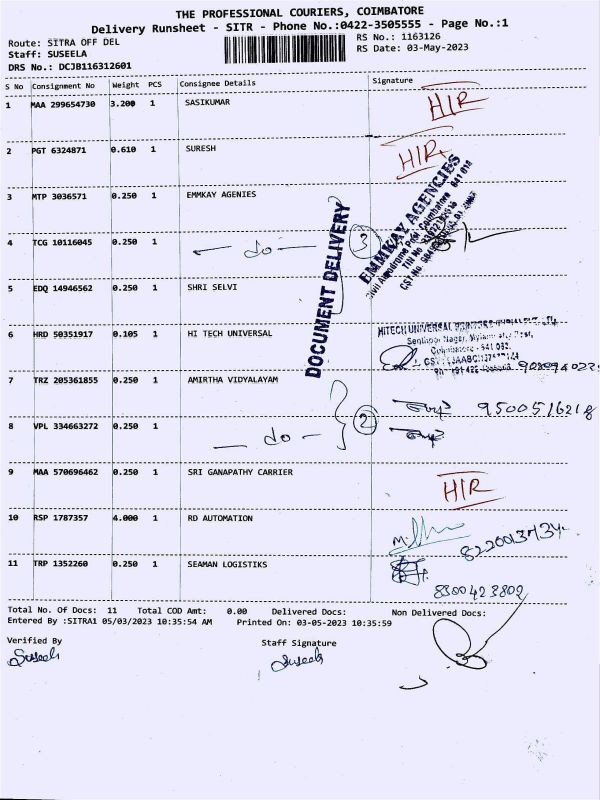 THE PROFESSIONAL COURIERS, COIMBATORE
Delivery Runsheet - SITR - Phone No.:0422-3505555 - Page No.:1
Route: SITRA OFF DEL
RS No.: 1163126
Staff: SUSEELA
RS Date: 03-May-2023
DRS No.: DCJB116312601
S No Consignment No Weight PCS Consignee Details Signature
1 MAA 299654730 3.200 1 SASIKUMAR HIR
2 PGT 6324871 0.610 1 SURESH HIR
3 MTP 3036571 0.250 1 EMMKAY AGENIES
EMMKAY AGENCIES
DOCUMENT DELIVERY
4 TCG 10116045 0.250 1 — do — 3
5 EDQ 14946562 0.250 1 SHRI SELVI
6 HRD 50351917 0.105 1 HI TECH UNIVERSAL
HITECH UNIVERSAL
7 TRZ 205361855 0.250 1 AMIRTHA VIDYALAYAM
8 VPL 334663272 0.250 1 — do — 2
9 MAA 570696462 0.250 1 SRI GANAPATHY CARRIER HIR
10 RSP 1787357 4.000 1 RD AUTOMATION
11 TRP 1352260 0.250 1 SEAMAN LOGISTIKS
8300423802
Total No. Of Docs: 11 Total COD Amt: 0.00 Delivered Docs: Non Delivered Docs:
Entered By :SITRA1 05/03/2023 10:35:54 AM Printed On: 03-05-2023 10:35:59
Verified By Staff Signature
Suseela Suseela